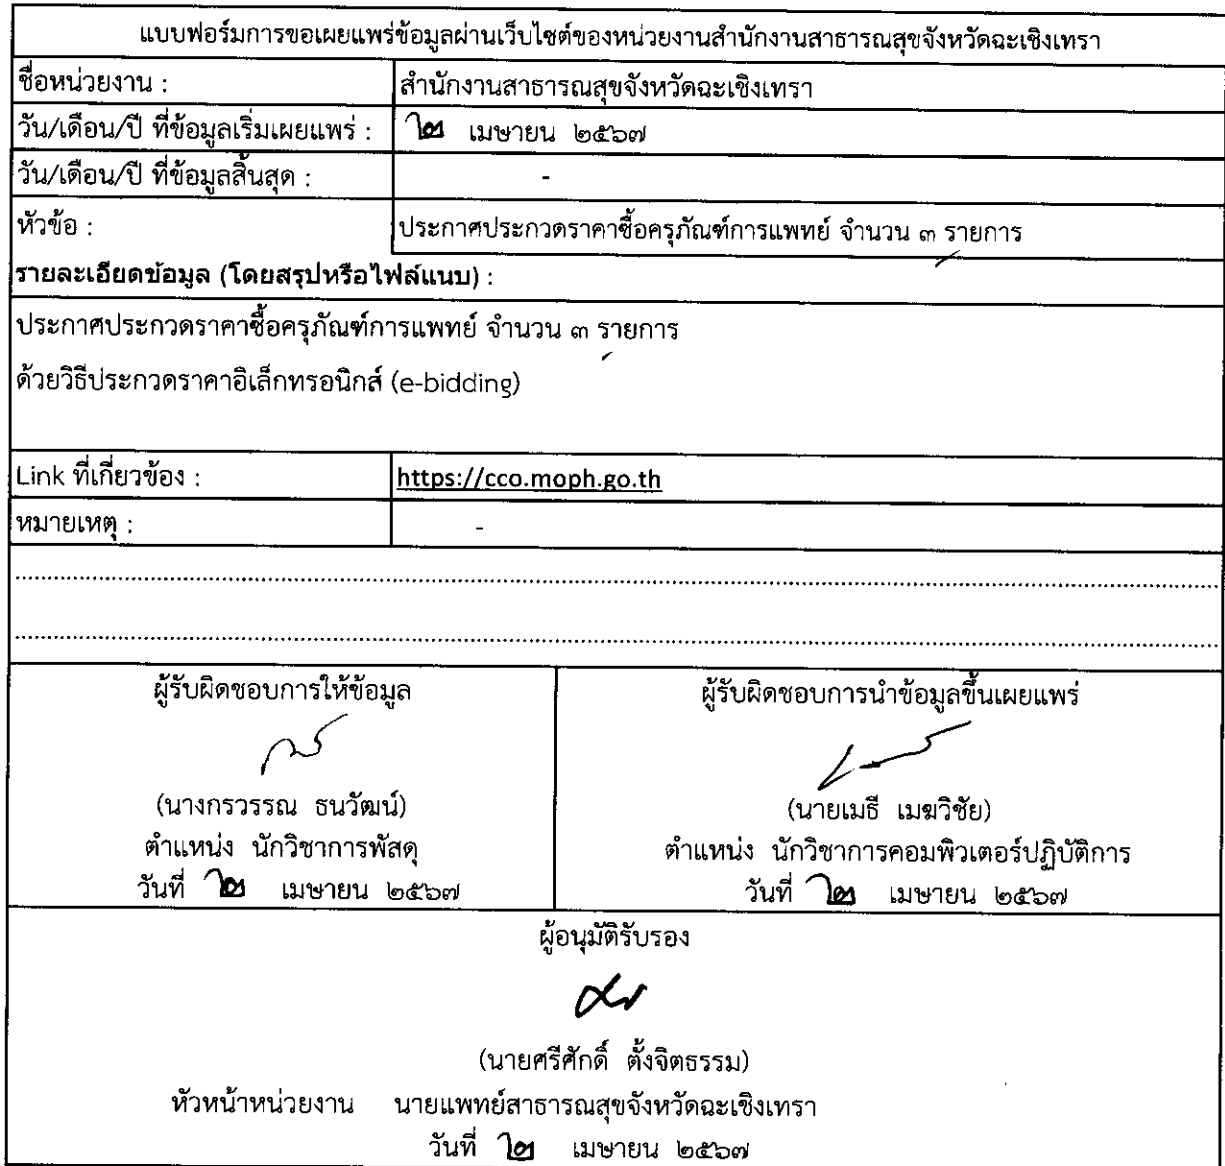 แบบฟอร์มการขอเผยแพร่ข้อมูลผ่านเว็บไซต์ของหน่วยงานสำนักงานสาธารณสุขจังหวัดฉะเชิงเทรา
ชื่อหน่วยงาน : สำนักงานสาธารณสุขจังหวัดฉะเชิงเทรา
วัน/เดือน/ปี ที่ข้อมูลเริ่มเผยแพร่ : ๑๒ เมษายน ๒๕๖๗
วัน/เดือน/ปี ที่ข้อมูลสิ้นสุด : -
หัวข้อ : ประกาศประกวดราคาซื้อครุภัณฑ์การแพทย์ จำนวน ๓ รายการ
รายละเอียดข้อมูล (โดยสรุปหรือไฟล์แนบ) :
ประกาศประกวดราคาซื้อครุภัณฑ์การแพทย์ จำนวน ๓ รายการ
ด้วยวิธีประกวดราคาอิเล็กทรอนิกส์ (e-bidding)
Link ที่เกี่ยวข้อง : https://cco.moph.go.th
หมายเหตุ : -
ผู้รับผิดชอบการให้ข้อมูล
(นางกรวรรณ ธนวัฒน์)
ตำแหน่ง นักวิชาการพัสดุ
วันที่ ๑๒ เมษายน ๒๕๖๗
ผู้รับผิดชอบการนำข้อมูลขึ้นเผยแพร่
(นายเมธี เมฆวิชัย)
ตำแหน่ง นักวิชาการคอมพิวเตอร์ปฏิบัติการ
วันที่ ๑๒ เมษายน ๒๕๖๗
ผู้อนุมัติรับรอง
(นายศรีศักดิ์ ตั้งจิตธรรม)
หัวหน้าหน่วยงาน นายแพทย์สาธารณสุขจังหวัดฉะเชิงเทรา
วันที่ ๑๒ เมษายน ๒๕๖๗